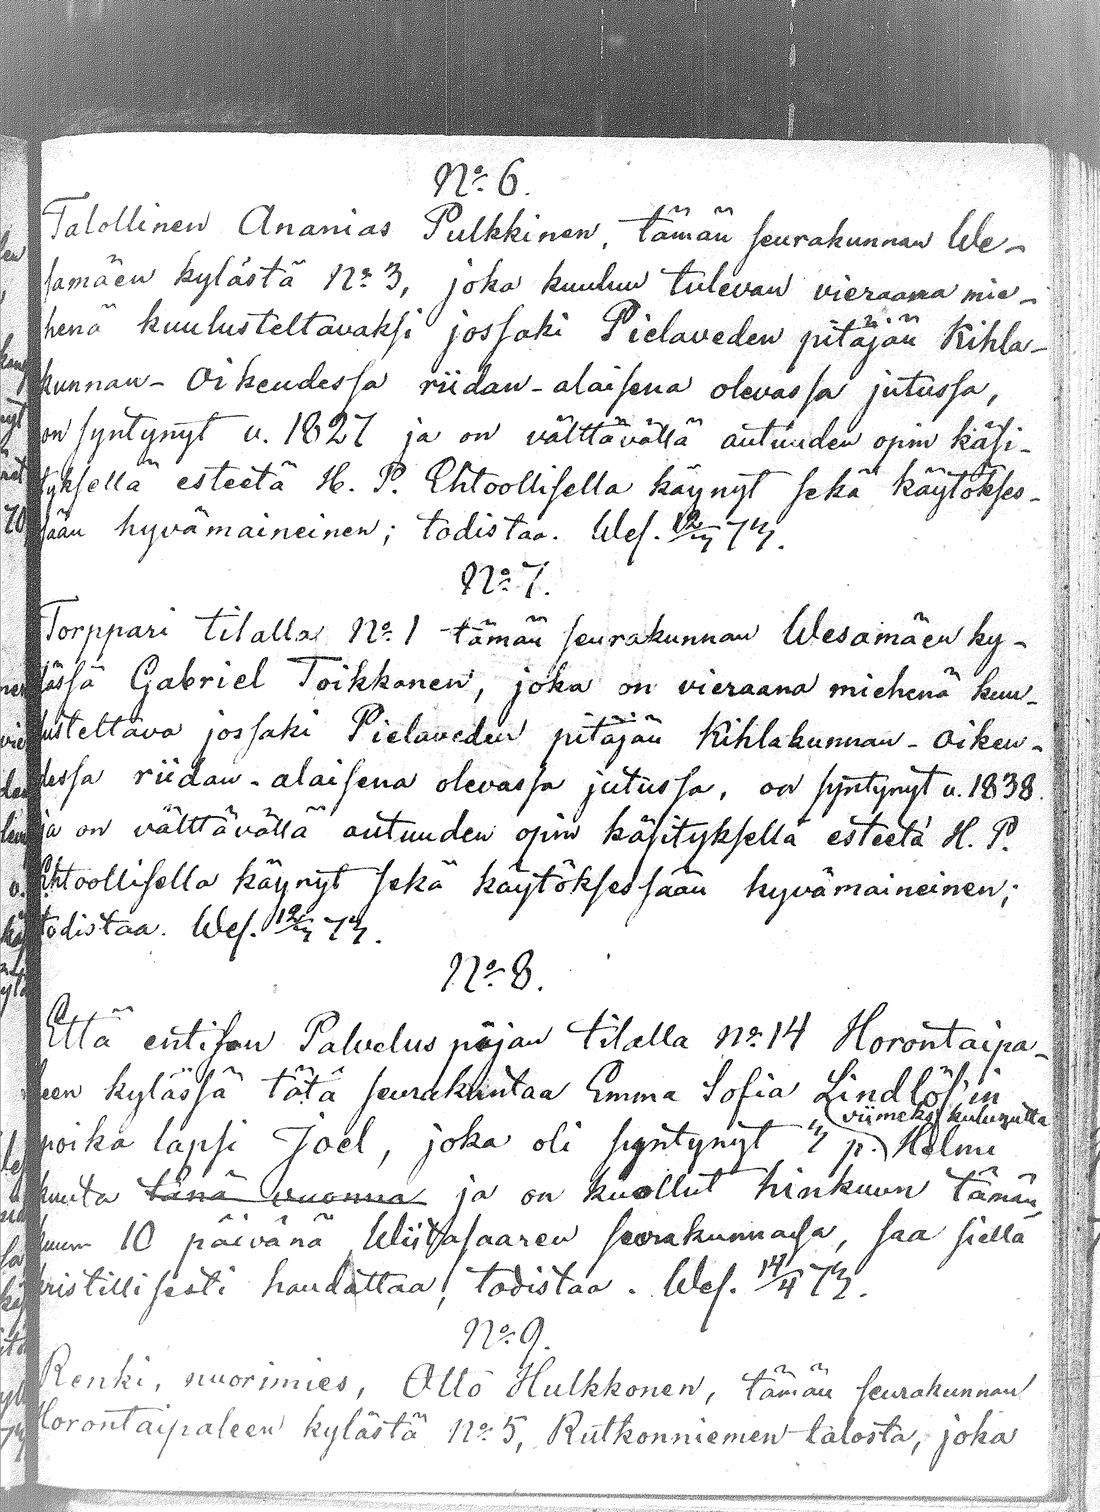 No 6.
Talollinen Ananias Pulkkinen, tämän seurakunnan We-
samäen kylästä No 3, joka kuuluu tulevan vieraana mie-
henä kuulusteltavaksi jossaki Pielaveden pitäjän Kihla-
kunnan-Oikeudessa riidan-alaisena olevassa jutussa,
on syntynyt v. 1827 ja on välttävällä autuuden opin käsi-
tyksellä esteetä H. P. Ehtoollisella käynyt sekä käytökses-
sään hyvämaineinen; todistaa. Wes. 12/3 73.
No 7.
Torppari tilalla No 1 tämän seurakunnan Wesamäen ky-
lässä Gabriel Toikkanen, joka on vieraana miehenä kuu-
lusteltava jossaki Pielaveden pitäjän Kihlakunnan-oikeu-
dessa riidan-alaisena olevassa jutussa, on syntynyt v. 1838.
ja on välttävällä autuuden opin käsityksellä esteetä H. P.
Ehtoollisella käynyt sekä käytöksessään hyvämaineinen;
todistaa. Wes. 12/3 73.
No 8.
Että entisen Palvelus piijan tilalla No 14 Horontaipa-
leen kylässä tätä seurakuntaa Emma Sofia Lindlöf'in
viimeksi kulunutta
poika lapsi Joel, joka oli syntynyt 3 p. Helmi
kuuta tänä vuonna ja on kuollut hinkuun tämän
kuun 10 päivänä Wiitasaaren seurakunnassa, saa siellä
kristillisesti haudattaa; todistaa. Wes. 14/4 73.
No 9.
Renki, nuorimies, Otto Hulkkonen, tämän seurakunnan
Horontaipaleen kylästä No 5, Rutkonniemen talosta, joka